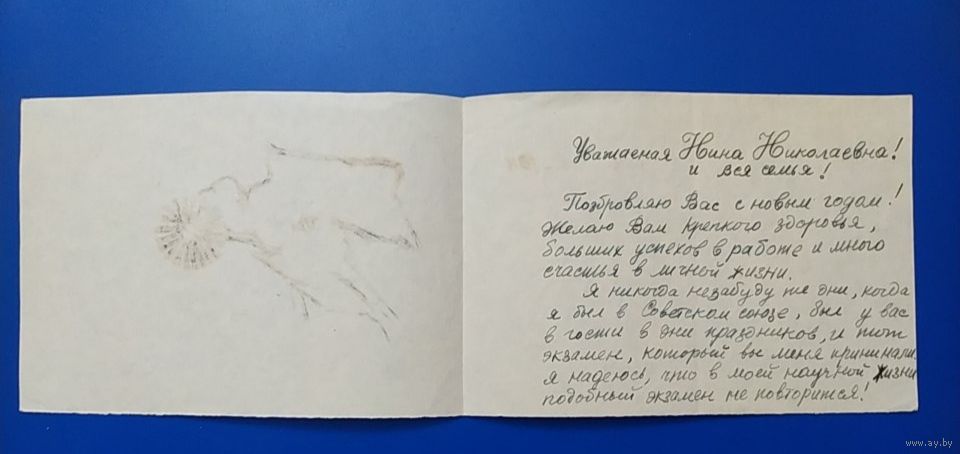 Уважаемая Нина Николаевна!
и вся семья!
Позбровляю Вас с новым годом!
Желаю Вам крепкого здоровья,
больших успехов в работе и много
счастья в личной жизни.
Я никогда незабуду те дни, когда
я был в Советском союзе, был у вас
в гости в дни праздников, и тот
экзамен, который вы меня принимали.
я надеюсь, что в моей научной жизни
подобный экзамен не повторится!
www.ay.by